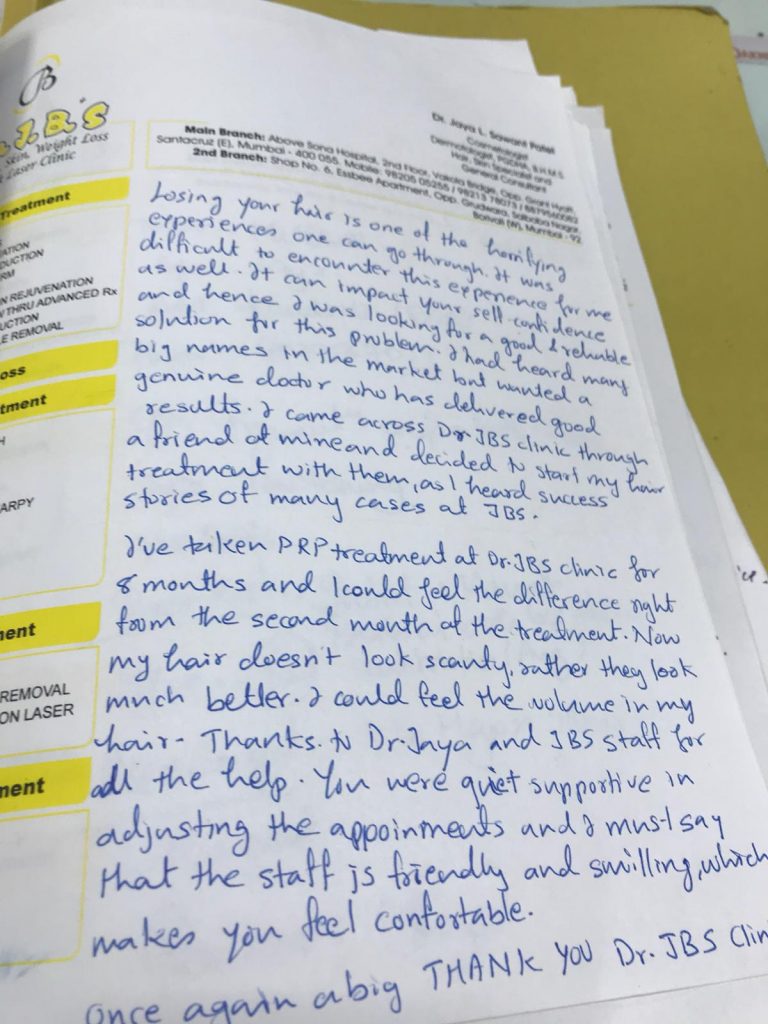 J.B.'S
Skin, Weight Loss
Laser Clinic
Dr. Jaya L. Sawant Patel
Cosmetologist
Dermatologist, PGDM, B.H.M.S
Hair, Skin Specialist and
General Consultant
Main Branch: Above Sona Hospital, 2nd Floor, Vakola Bridge, Opp. Grant Hyatt
Santacruz (E), Mumbai - 400 055. Mobile: 98205 05255 / 98213 78073 /
2nd Branch: Shop No. 6, Essbee Apartment, Opp. Gurdwara, Saibaba Nagar,
Borivali (W), Mumbai - 92
Treatment
ATION
DUCTION
RM
N REJUVENATION
THRU ADVANCED Rx
UCTION
E REMOVAL
oss
tment
H
ARPY
ment
REMOVAL
ON LASER
ment
Losing your hair is one of the horrifying
experiences one can go through. It was
difficult to encounter this experience for me
as well. It can impact your self confidence
and hence I was looking for a good & reliable
solution for this problem. I had heard many
big names in the market but wanted a
genuine doctor who has delivered good
results. I came across Dr JBS clinic through
a friend of mine and decided to start my hair
treatment with them, as I heard success
stories of many cases at JBS.
I've taken PRP treatment at Dr. JBS clinic for
8 months and I could feel the difference right
from the second month of the treatment. Now
my hair doesn't look scanty, rather they look
much better. I could feel the volume in my
hair - Thanks. to Dr. Jaya and JBS staff for
all the help. You were quiet supportive in
adjusting the appoinments and I must say
that the staff is friendly and smilling, which
makes you feel confortable.
Once again a big THANK YOU Dr. JBS Clin